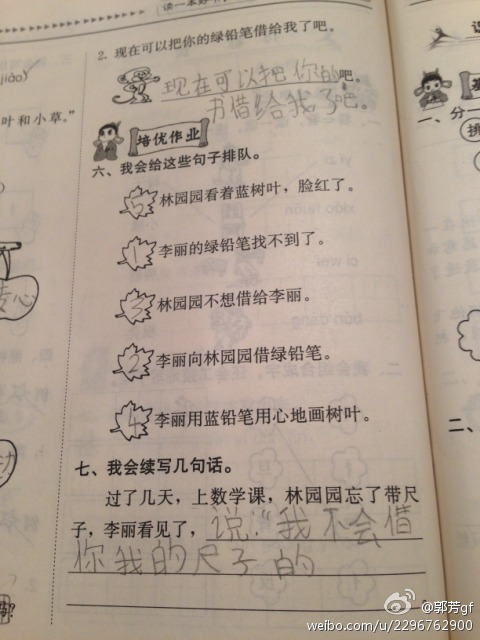 读一本好书
2. 现在可以把你的绿铅笔借给我了吧。
现在可以把你的吧。
书借给我了吧。
jiào)
叶和小草。”
培优作业
六、我会给这些句子排队。
5 林园园看着蓝树叶，脸红了。
1 李丽的绿铅笔找不到了。
3 林园园不想借给李丽。
2 李丽向林园园借绿铅笔。
4 李丽用蓝铅笔用心地画树叶。
心
七、我会续写几句话。
过了几天，上数学课，林园园忘了带尺
子，李丽看见了，说：“我不会借
你我的尺子的
一、分
二、
@郭芳gf
weibo.com/u/2296762900